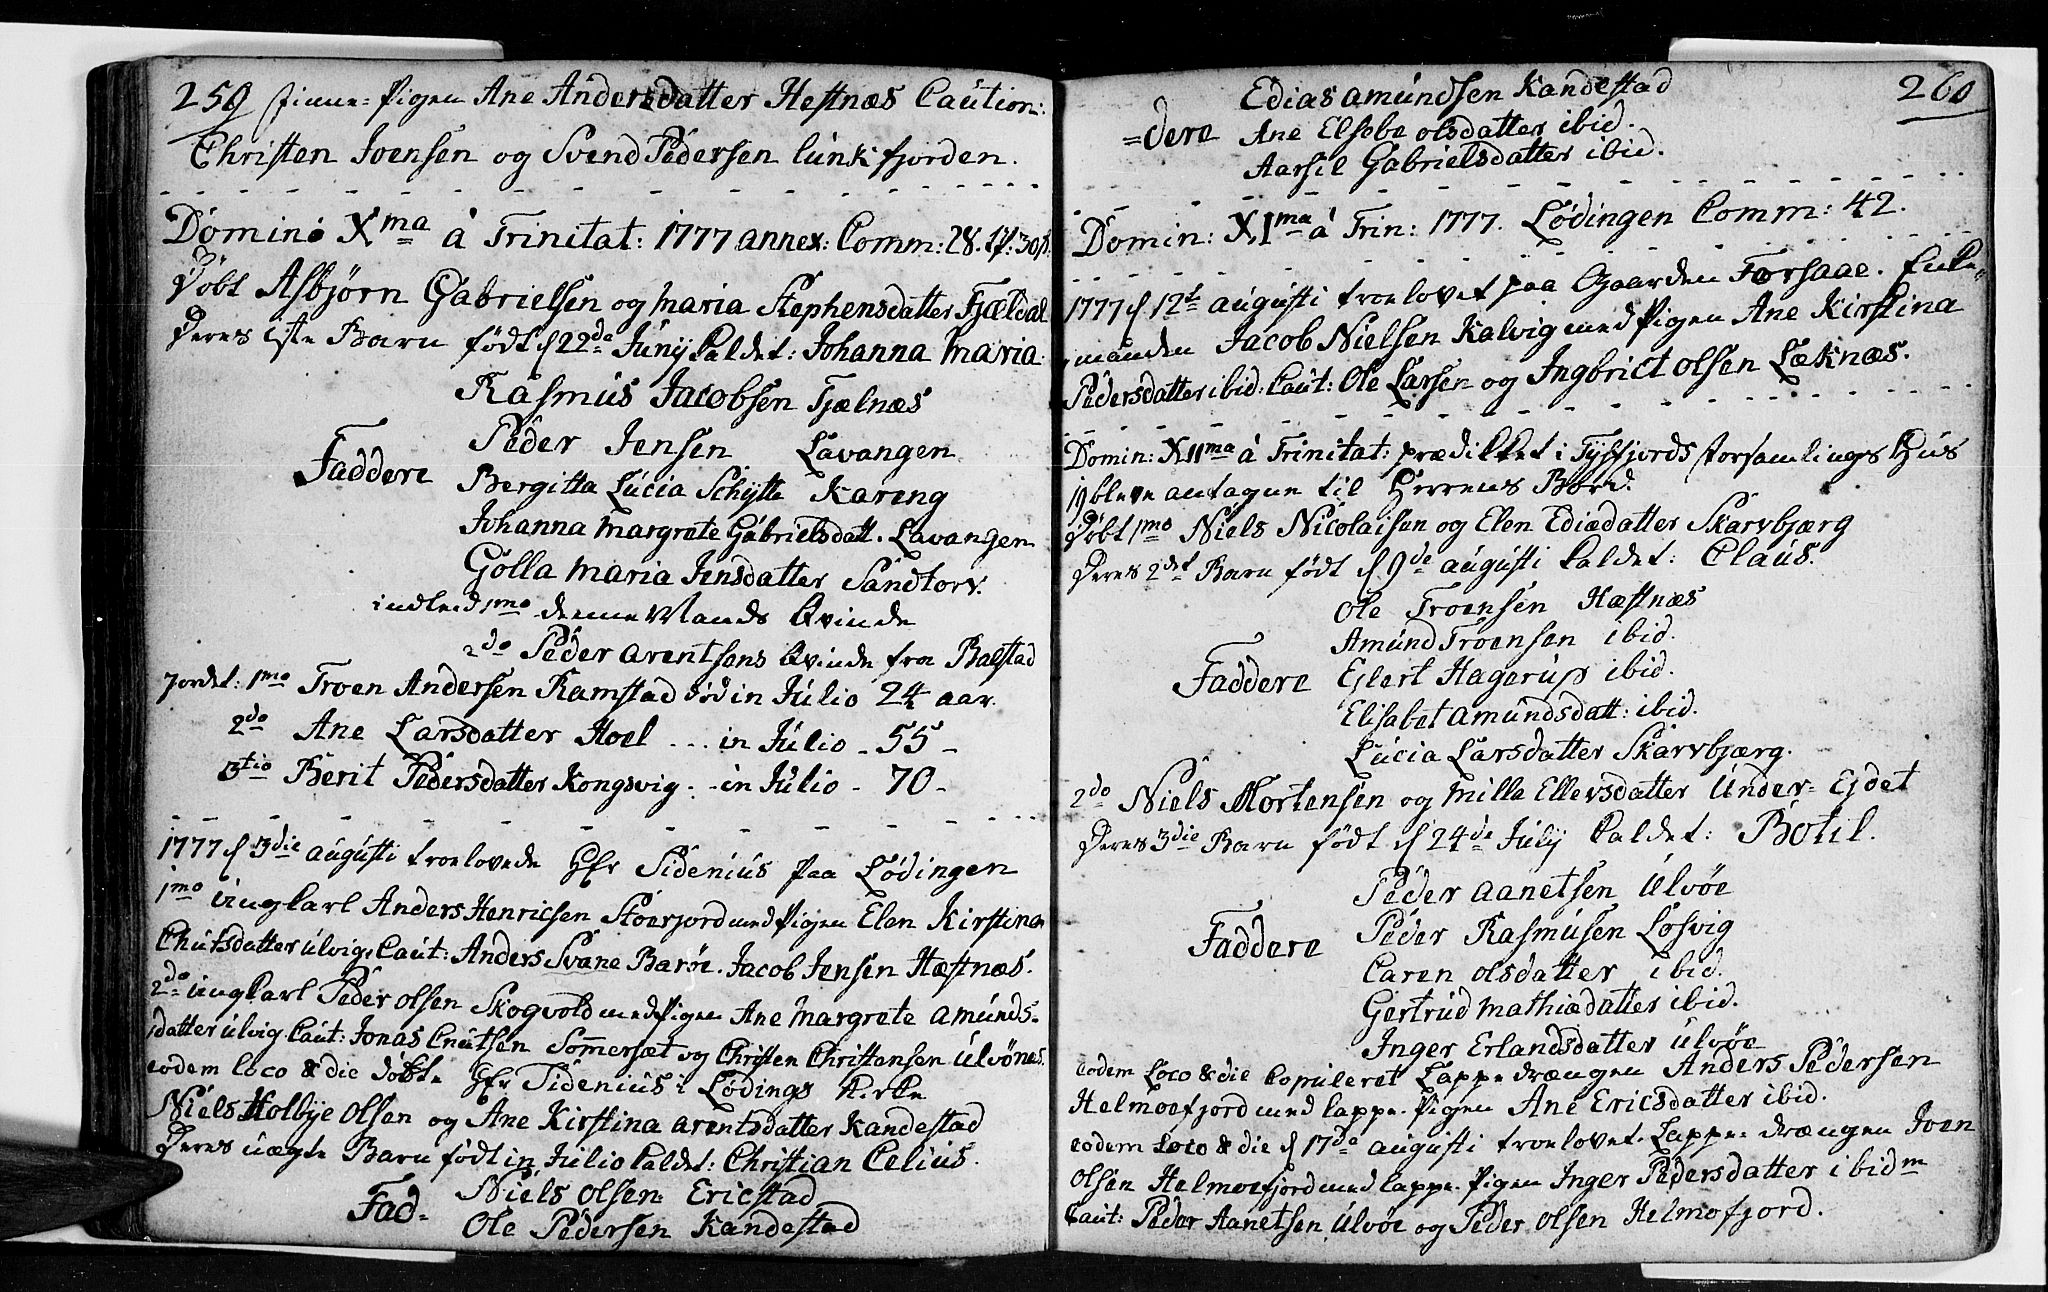 259 tiene-Pigen Ane Andersdatter Hestnæs Caution:
Christen Joensen og Svend Pedersen lunkfjorden.
Domino Xma á Trinitat: 1777 annex: Comm: 28.
Døbt Asbjørn Gabrielsen og Maria Stephensdatter Fjældal
Deres 1ste Barn født d 22de Junij kaldet: Johanna Maria.
Rasmus Jacobsen Fjælnæs
Peder Jensen Lavangen
Faddere Bergitta Lucia Schÿtte Kareng
Johanna Margrete Gabrielsdatt. Lavangen
Golla Maria Jensdatter Sandtorv.
indleed 1mo denne Mands Qvinde
2do Peder Arentsens Qvinde fra Balstad
Jordet: 1mo Troen Andersen Ramstad død in Julio 24 aar.
2do Ane Larsdatter Hoel ... in Julio - 55 -
3tio Berit Pedersdatter Kongsvig. - in Julio - 70 -
1777 d 3die augusti troelovede Hr Sidenius paa Lødingen
1mo ungkarl Anders Henricsen Stoerfjord med Pigen Elen Kirstina
Chutsdatter Ulvig. Caut: Anders Svane Barøe. Jacob Jensen Hæstnæs.
2do ungkarl Peder Olsen Skogvold med Pigen Ane Margrete Amunds-
datter Ulvig Caut: Jonas Cnutsen Sommersæt og Christen Christensen Ulvønæs.
eodem loco & die døbte Hr Sidenius i Lødings Kirke
Niels Holbye Olsen og Ane Kirstina Arentsdatter Kandestad
Deres uægte Barn født in Julio kaldet: Christian Celius.
Fad- Niels Olsen Ericstad
Ole Pedersen Kandestad
260
Edias Amundsen Kandestad
=dere Ane Elsebe Olsdatter ibid.
Aarsil Gabrielsdatter ibid.
Domin: XIma á Trin: 1777. Lødingen Comm: 42.
1777 d 12te augusti troelovet paa Gaarden Forsaae. Enke-
manden Jacob Nielsen Kalvig med Pigen Ane Kirstina
Pedersdatter ibid. Caut: Ole Larsen og Ingbrict Olsen Læknæs.
Domin: XIIma á Trinitat: prædikket i Tysfjords Forsamlings Huus
19 bleve antagne til Herrens Bord.
Døbt 1mo Niels Nicolaisen og Elen Ediædatter Skarvbjerg
Deres 2det Barn født d 9de augusti kaldet: Claus.
Ole Troensen Hæstnæs
Amund Troensen ibid.
Faddere Ejlert Hagerup ibid.
Elisabet Amundsdatt: ibid.
Lucia Larsdatter Skarvbjærg.
2do Niels Mortensen og Milla Ellevsdatter Under-Ejdet
Deres 3die Barn født d 24de Julÿ kaldet: Botil.
Peder Aanetsen Ulvøe
Peder Rasmusen Losvig
Faddere Caren Olsdatter ibid.
Gertrud Mathiædatter ibid.
Inger Erlandsdatter Ulvøe
eodem Loco & die Copuleret Lappe drængen Anders Pedersen
Helmoefjord med lappe-Pigen Ane Ericsdatter ibid.
eodem Loco & die d 17de augusti troelovet. Lappe-drængen Joen
Olsen Helmoefjord med lappe-Pigen Inger Pedersdatter ibidm
Caut: Peder Aanetsen Ulvøe og Peder Olsen Helmofjord.